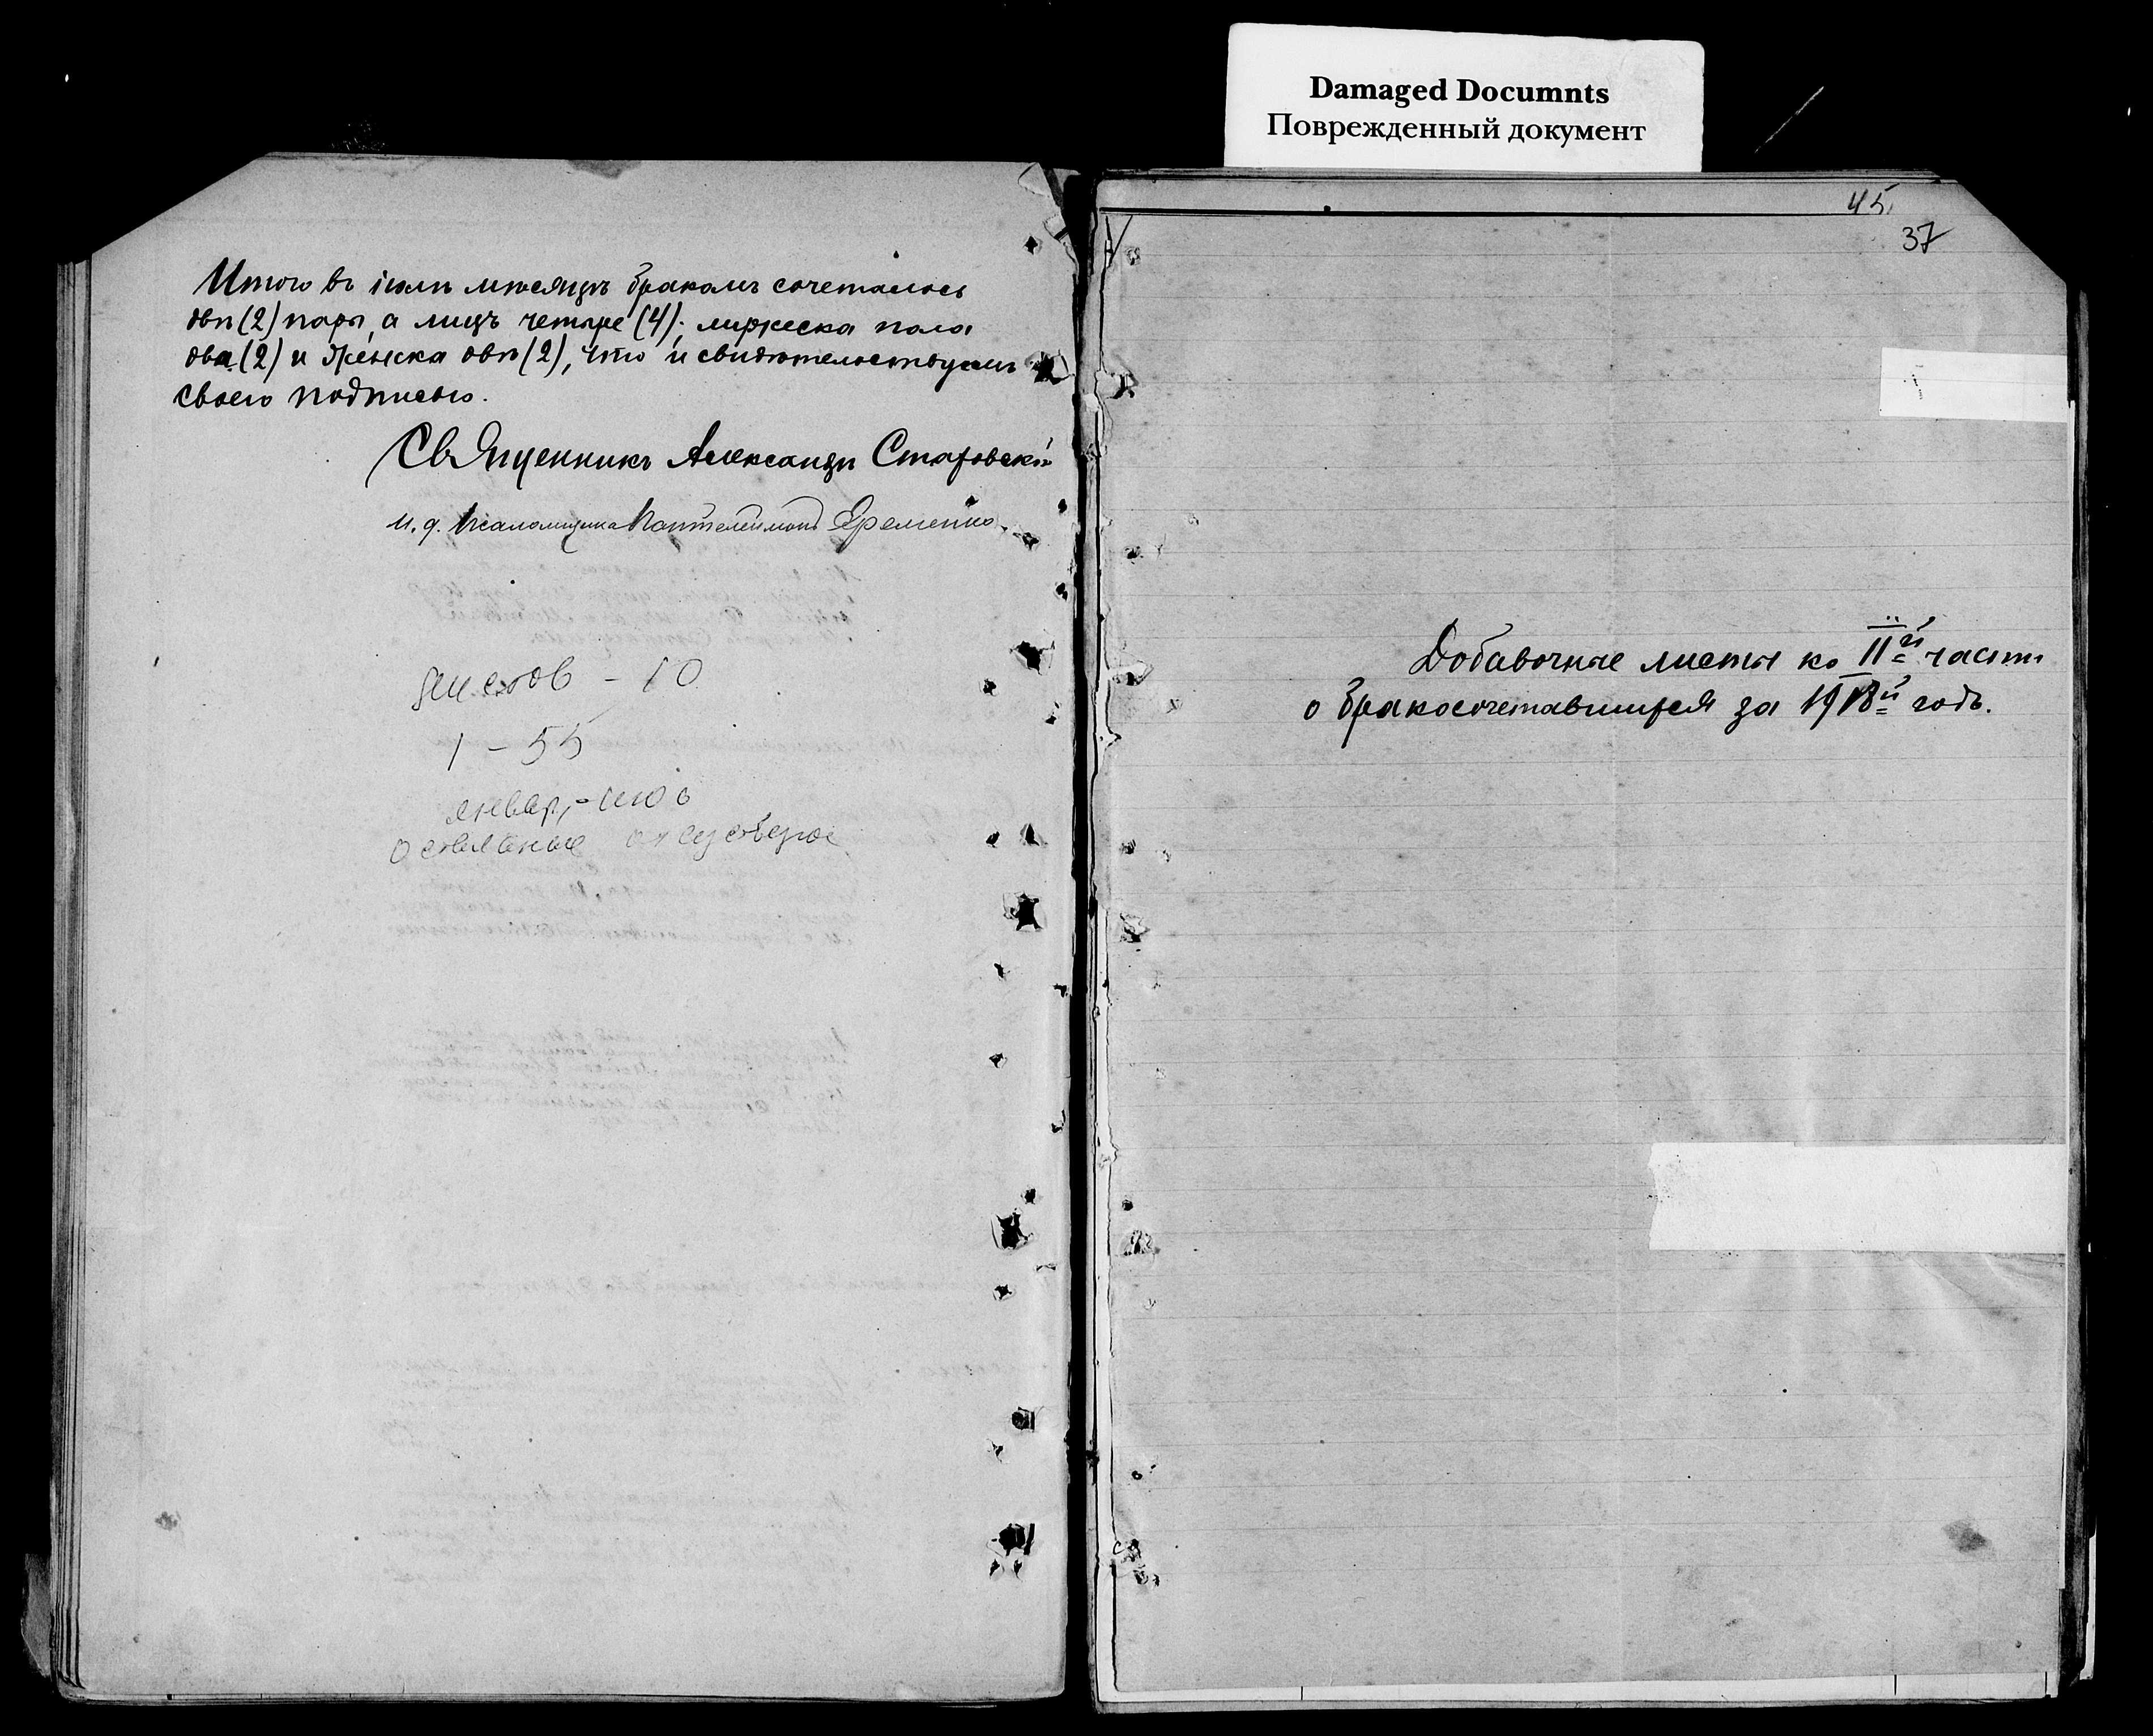 Damaged Documnts
Поврежденный документ
Итого въ іюлѣ мѣсяцѣ бракомъ сочеталось
двѣ (2) пары, а лицъ четыре (4); мужеска пола
два (2) и женска двѣ (2), что и свидѣтельствуемъ
своею подписью.
Священникъ Александръ Старовскій
и. д. псаломщика Пантелеимонъ Еременко.
листов - 10
1 - 55
январ, - июл
остальные отсутствуют
45
37
Добавочные листы ко IIй части
о бракосочетавшихся за 1918й годъ.